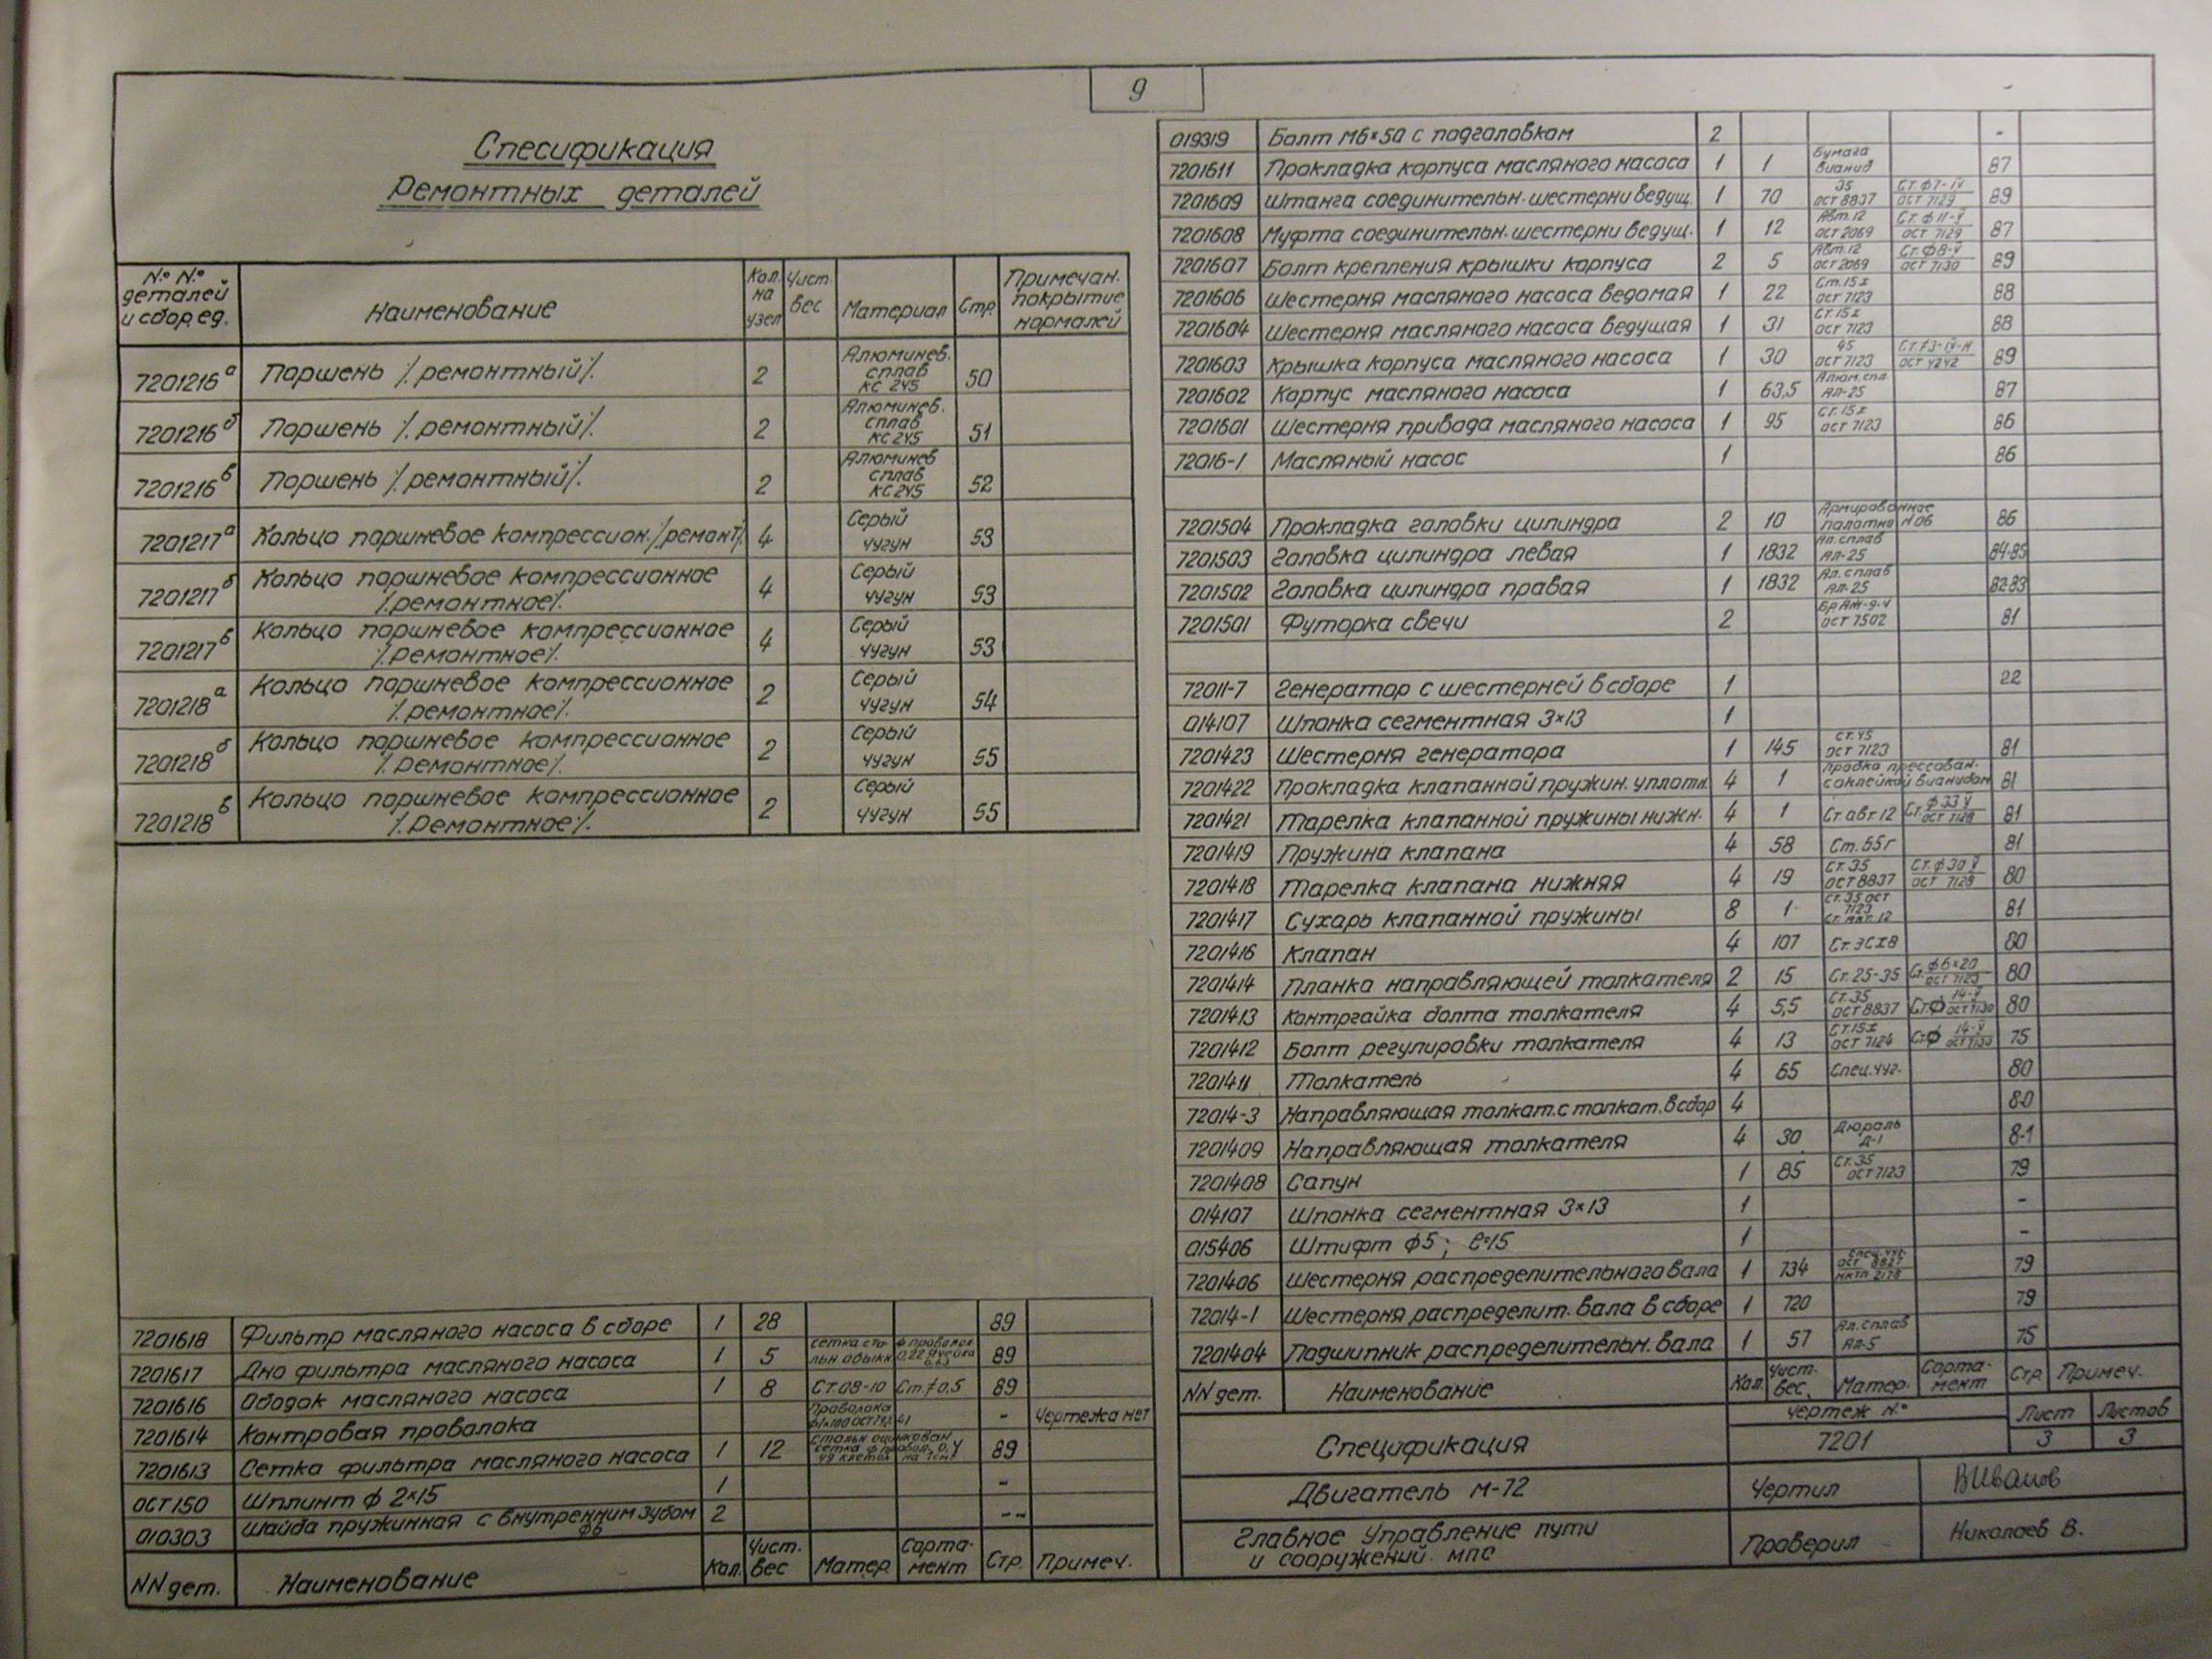 9
Спесификация
Ремонтных деталей
N.º N.º деталей и сбор.ед. Наименование Кол. на узел Чист. вес Материал Стр. Примечан. покрытие нормалей
7201216а Поршень ⁒ ремонтный ⁒. 2 Алюминев. сплав КС 245 50
7201216б Поршень ⁒ ремонтный ⁒. 2 Алюминев. сплав КС 245 51
7201216в Поршень ⁒ ремонтный ⁒. 2 Алюминев сплав КС 245 52
7201217а Кольцо поршневое компрессион. ⁒ ремонт ⁒. 4 Серый чугун 53
7201217б Кольцо поршневое компрессионное ⁒ ремонтное ⁒. 4 Серый чугун 53
7201217в Кольцо поршневое компрессионное ⁒ ремонтное ⁒. 4 Серый чугун 53
7201218а Кольцо поршневое компрессионное ⁒ ремонтное ⁒. 2 Серый чугун 54
7201218б Кольцо поршневое компрессионное ⁒ ремонтное ⁒. 2 Серый чугун 55
7201218в Кольцо поршневое компрессионное ⁒ ремонтное ⁒. 2 Серый чугун 55
7201618 Фильтр масляного насоса в сборе 1 28 89
7201617 Дно фильтра масляного насоса 1 5 сетка сталь н обыкн ф проволок 0,22 ячейка 89
7201616 Ободок масляного насоса 1 8 Ст.08-10 Ст.≠0.5 89
7201614 Контровая проволока Проволока - Чертежа нет
7201613 Сетка фильтра масляного насоса 1 12 89
ОСТ150 Шплинт ф 2×15 1 -
010303 Шайба пружинная с внутренним зубом ф6 2 --
NN дет. Наименование Кол. Чист. вес Матер. Сорта-мент Стр. Примеч.
019319 Болт М6×50 с подголовком 2 -
7201611 Прокладка корпуса масляного насоса 1 1 Бумага 87
7201609 Штанга соединительн. шестерни ведущ. 1 70 35 ОСТ 8837 Ст.ф7-IV ОСТ 7129 89
7201608 Муфта соединительн. шестерни ведущ. 1 12 Авт.12 ОСТ 2069 Ст.ф11-V ОСТ 7129 87
7201607 Болт крепления крышки корпуса 2 5 Авт.12 ОСТ 2069 Ст.ф8-V ОСТ 7130 89
7201606 Шестерня масляного насоса ведомая 1 22 Ст.15х ОСТ 7123 88
7201604 Шестерня масляного насоса ведущая 1 31 Ст.15х ОСТ 7123 88
7201603 Крышка корпуса масляного насоса 1 30 45 ОСТ 7123 Ст.≠3-IV-Н ОСТ 4242 89
7201602 Корпус масляного насоса 1 63,5 Алюм.спл. Ал-25 87
7201601 Шестерня привода масляного насоса 1 95 Ст.15х ОСТ 7123 86
72016-1 Масляный насос 1 86
7201504 Прокладка головки цилиндра 2 10 Армированное полотно N 06 86
7201503 Головка цилиндра левая 1 1832 Ал.сплав Ал-25 84-85
7201502 Головка цилиндра правая 1 1832 Ал.сплав Ал-25 82-83
7201501 Футорка свечи 2 Бр АЖ-9-4 ОСТ 7502 81
72011-7 Генератор с шестерней в сборе 1 22
014107 Шпонка сегментная 3×13 1
7201423 Шестерня генератора 1 145 Ст.45 ОСТ 7123 81
7201422 Прокладка клапанной пружин. уплотн. 4 1 81
7201421 Тарелка клапанной пружины нижн. 4 1 Ст.авт.12 Ст. ф33 V ОСТ 7128 81
7201419 Пружина клапана 4 58 Ст.65г 81
7201418 Тарелка клапана нижняя 4 19 Ст.35 ОСТ 8837 Ст.ф30 V ОСТ 7128 80
7201417 Сухарь клапанной пружины 8 1 Ст.35 ОСТ 7123 Ст. авт.12 81
7201416 Клапан 4 107 Ст.ЭСХ8 80
7201414 Планка направляющей толкателя 2 15 Ст.25-35 Ст. ф6×20 ОСТ 7123 80
7201413 Контргайка болта толкателя 4 5,5 Ст.35 ОСТ 8837 Ст.ф 14-V ОСТ 7130 80
7201412 Болт регулировки толкателя 4 13 Ст.15х ОСТ 7124 Ст.ф 14-V ОСТ 7130 75
7201411 Толкатель 4 65 Спец.чуг. 80
72014-3 Направляющая толкат. с толкат. в сбор 4 80
7201409 Направляющая толкателя 4 30 Дюраль Д-1 8-1
7201408 Сапун 1 85 Ст.35 ОСТ 7123 79
014107 Шпонка сегментная 3×13 1 -
015406 Штифт ф5; ℓ=15 1 -
7201406 Шестерня распределительного вала 1 734 79
72014-1 Шестерня распределит. вала в сборе 1 720 79
7201404 Подшипник распределительн. вала 1 57 Ал.сплав Ал-5 75
NN дет. Наименование Кол. Чист. вес. Матер. Сорта-мент Стр. Примеч.
Спецификация Чертеж N.º 7201 Лист 3 Листов 3
Двигатель М-72 Чертил ВИванов
Главное Управление пути и сооружений МПС Проверил Николаев В.